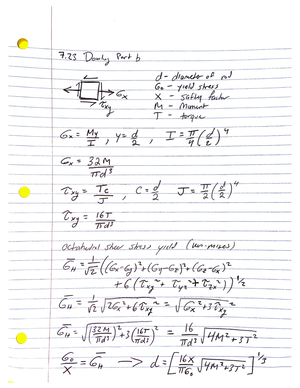 7.23 Dowling Part b
d - diameter of rod
σo - yield stress
X - safety factor
M - Moment
T - torque
σx
τxy
σx = My/I , y = d/2 , I = π/4 (d/2)^4
σx = 32M/πd³
τxy = Tc/J , C = d/2 J = π/2 (d/2)^4
τxy = 16T/πd³
Octahedral shear stress yield (von-mises)
σ̄H = 1/√2 ((σx-σy)²+(σy-σz)²+(σz-σx)²
+6(τxy² + τyz² + τzx²))^1/2
σ̄H = 1/√2 √(2σx²+6τxy²) = √(σx²+3τxy²)
σ̄H = √((32M/πd³)²+3(16T/πd³)²) = 16/πd³ √(4M²+3T²)
σo/X = σ̄H → d = [16X/πσo √(4M²+3T²)]^1/3